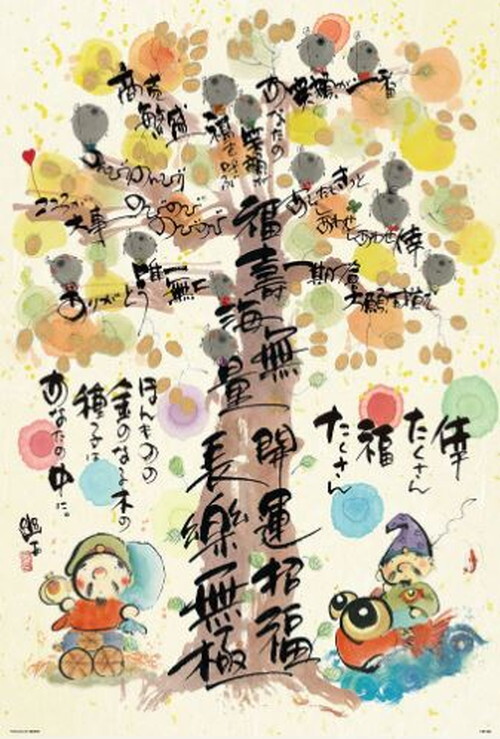 商売
繁盛
あなたの
笑顔が一番
笑顔が
福を
のびのび
のびのび
こころが
大事
ありがとう
唯一無二
あしたもきっと
しあわせしあわせ
倖
一期一會
福壽海無量
長樂無極
開運招福
倖
たくさん
福
たくさん
ほんものの
金のなる木の
種子は
あなたの中に。